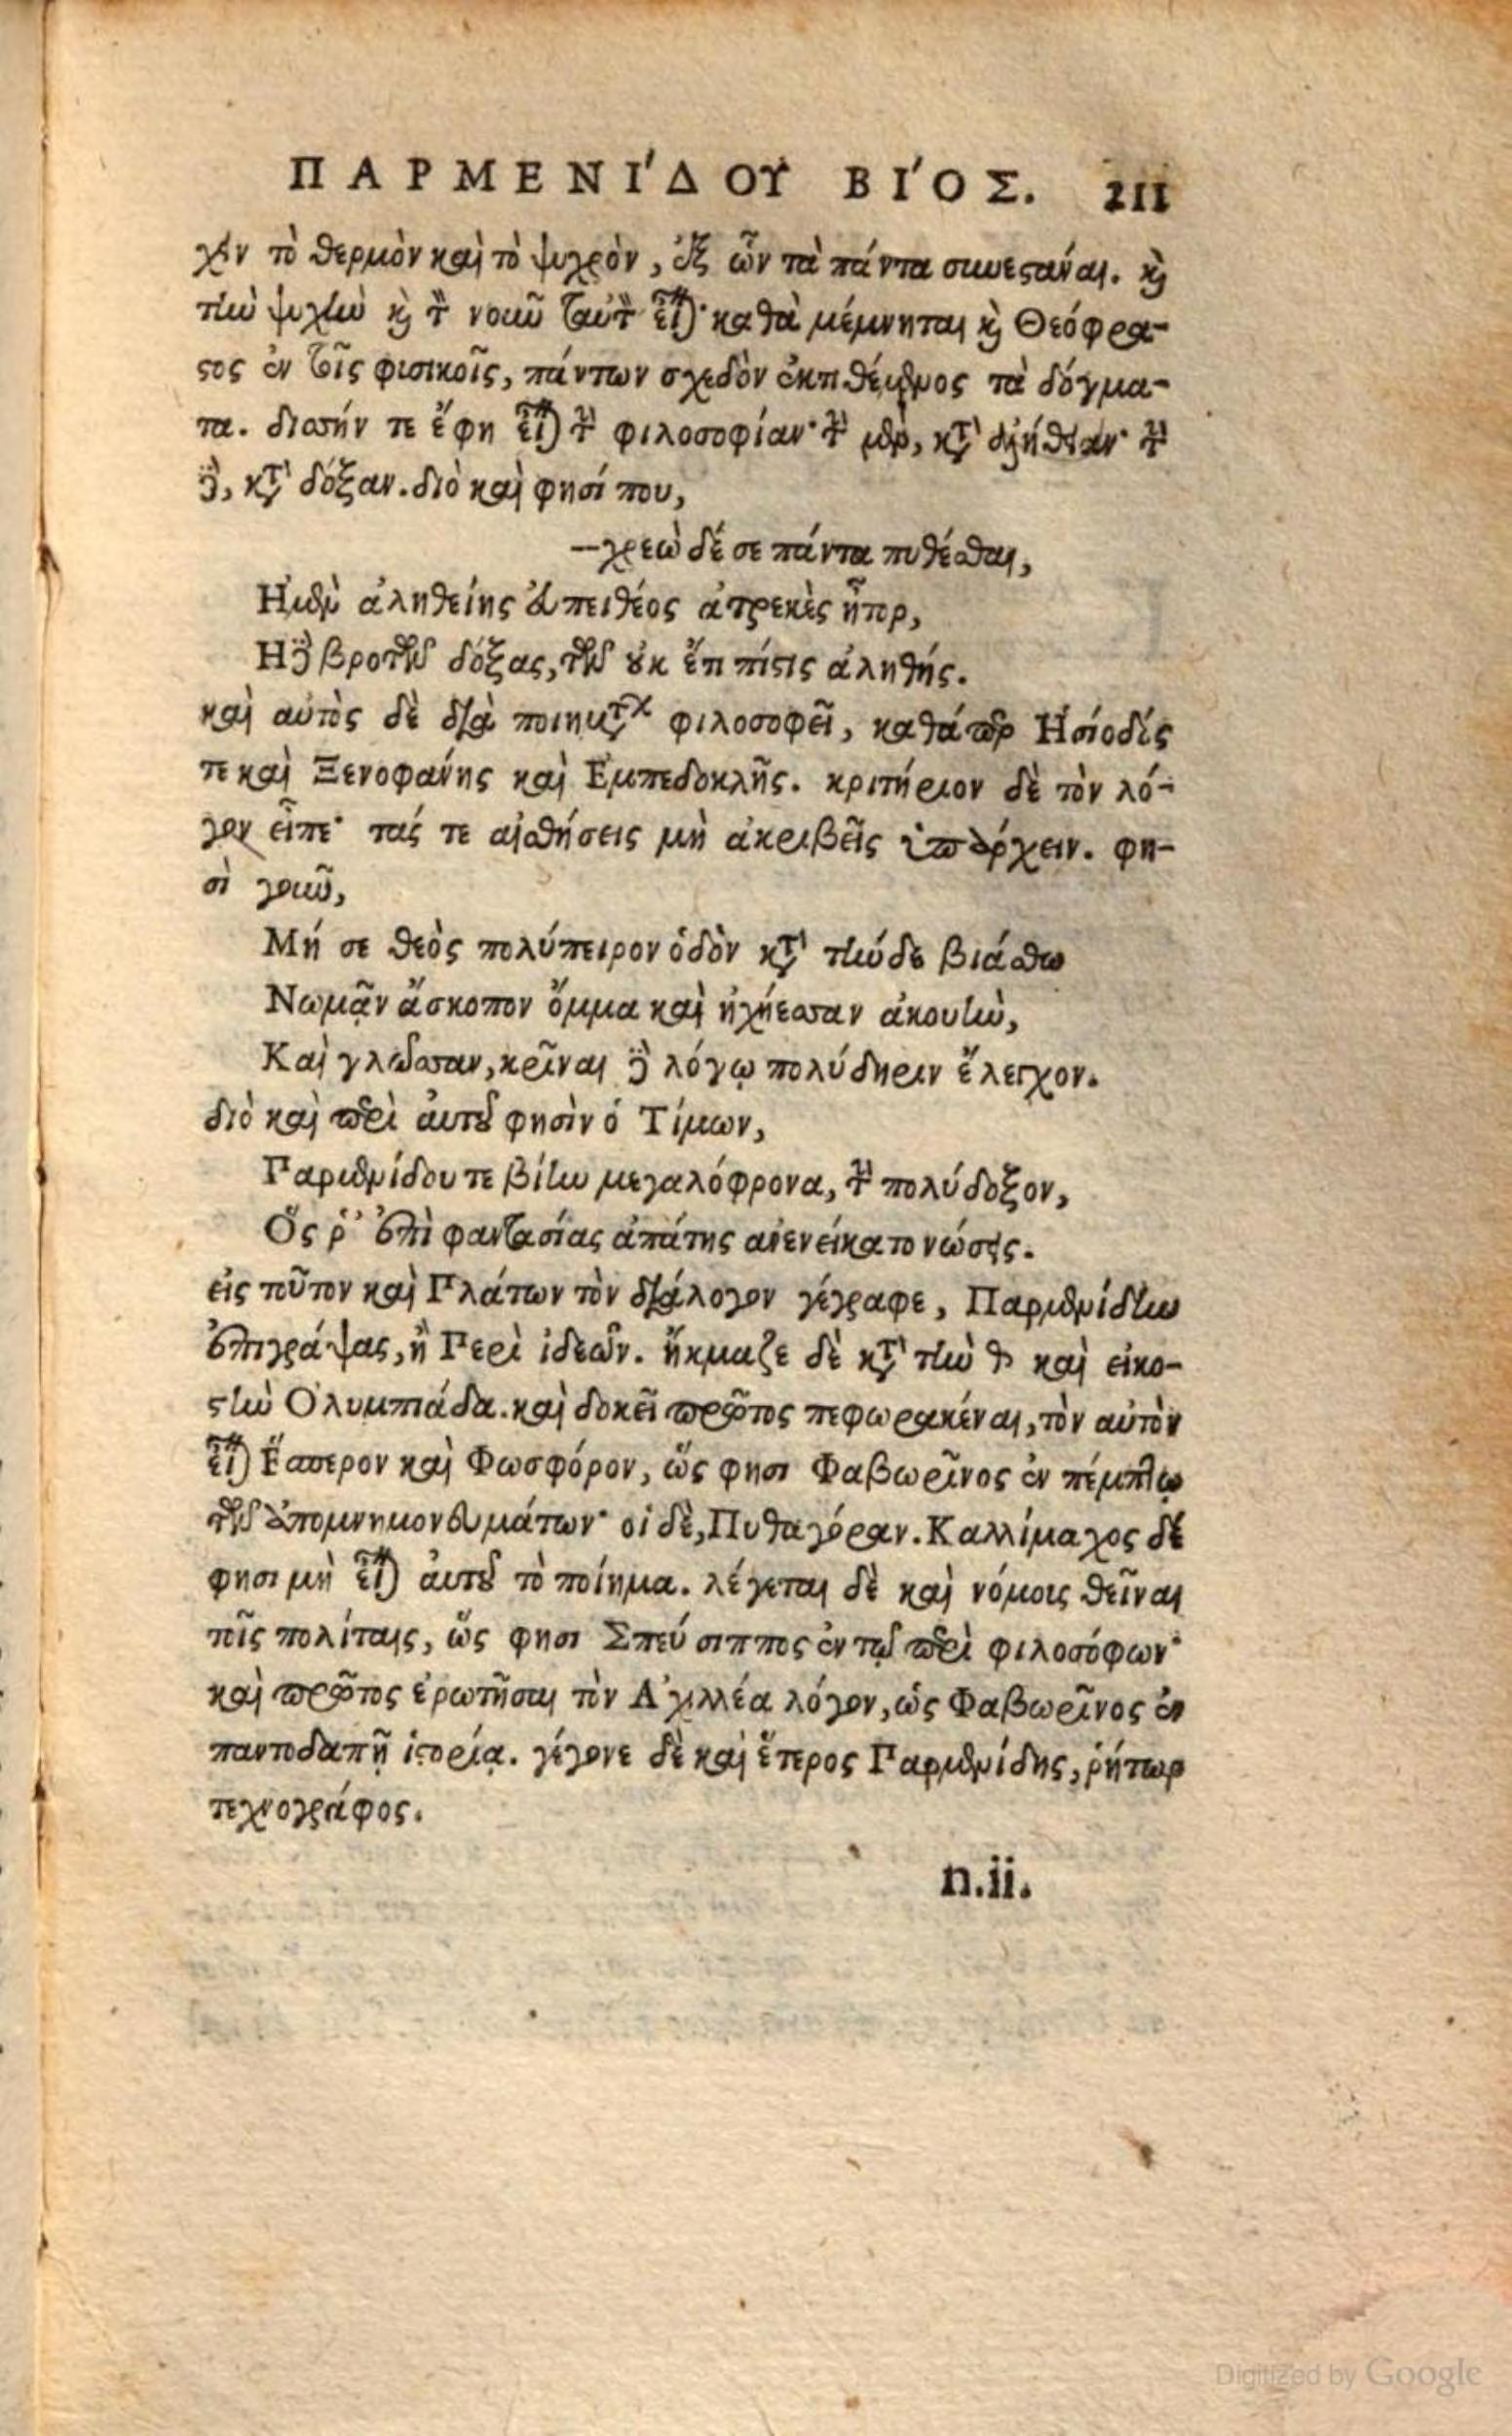 ΠΑΡΜΕΝΙ´ΔΟΥ ΒΙ´ΟΣ. 211
χειν τὸ θερμὸν καὶ τὸ ψυχρὸν, ἐξ ὧν τὰ πάντα συνεστάναι. καὶ
τὴν ψυχὴν καὶ τὸν νοῦν ταὐτὸν εἶναι· καθὰ μέμνηται καὶ Θεόφρα-
στος ἐν τοῖς φυσικοῖς, πάντων σχεδὸν ἐκτιθέμενος τὰ δόγμα-
τα. δισσήν τε ἔφη εἶναι τὴν φιλοσοφίαν· τὴν μὲν, κατὰ ἀλήθειαν· τὴν
δὲ, κατὰ δόξαν. διὸ καὶ φησί που,
—χρεὼ δέ σε πάντα πυθέσθαι,
Ημὲν ἀληθείης εὐπειθέος ἀτρεκὲς ἦτορ,
Ηδὲ βροτῶν δόξας, τῶν οὐκ ἔτι πίστις ἀληθής.
καὶ αὐτὸς δὲ διὰ ποιημάτων φιλοσοφεῖ, καθάπερ Ησίοδός
τε καὶ Ξενοφάνης καὶ Εμπεδοκλῆς. κριτήριον δὲ τὸν λό-
γον εἶπε· τάς τε αἰσθήσεις μὴ ἀκριβεῖς ὑπάρχειν. φη-
σὶ γοῦν,
Μή σε θεὸς πολύπειρον ὁδὸν κατὰ τήνδε βιάσθω
Νωμᾷν ἄσκοπον ὄμμα καὶ ἠχήεσσαν ἀκουὴν,
Καὶ γλῶσσαν, κρῖναι δὲ λόγῳ πολύδηριν ἔλεγχον.
διὸ καὶ περὶ αὐτοῦ φησὶν ὁ Τίμων,
Παρμενίδου τε βίην μεγαλόφρονα, τὴν πολύδοξον,
Ος ῥ' ἐπὶ φαντασίας ἀπάτης αἰενείκατο νώσεις.
εἰς τοῦτον καὶ Πλάτων τὸν διάλογον γέγραφε, Παρμενίδην
ἐπιγράψας, ἢ Περὶ ἰδεῶν. ἤκμαζε δὲ κατὰ τὴν θ καὶ εἰκο-
στὴν Ολυμπιάδα. καὶ δοκεῖ πρῶτος πεφωρακέναι, τὸν αὐτὸν
εἶναι Εσπερον καὶ Φωσφόρον, ὥς φησι Φαβωρῖνος ἐν πέμπτῳ
τῶν ἀπομνημονευμάτων· οἱ δὲ, Πυθαγόραν. Καλλίμαχος δέ
φησι μὴ εἶναι αὐτοῦ τὸ ποίημα. λέγεται δὲ καὶ νόμοις θεῖναι
τοῖς πολίταις, ὥς φησι Σπεύσιππος ἐν τῷ περὶ φιλοσόφων·
καὶ πρῶτος ἐρωτῆσαι τὸν Α᾿χιλλέα λόγον, ὡς Φαβωρῖνος ἐν
παντοδαπῇ ἱστορίᾳ. γέγονε δὲ καὶ ἕτερος Παρμενίδης, ῥήτωρ
τεχνογράφος.
n.ii.
Digitized by Google